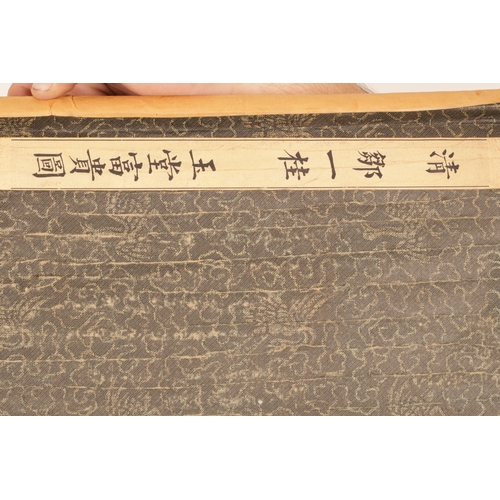 清 鄒一桂 玉堂富貴圖